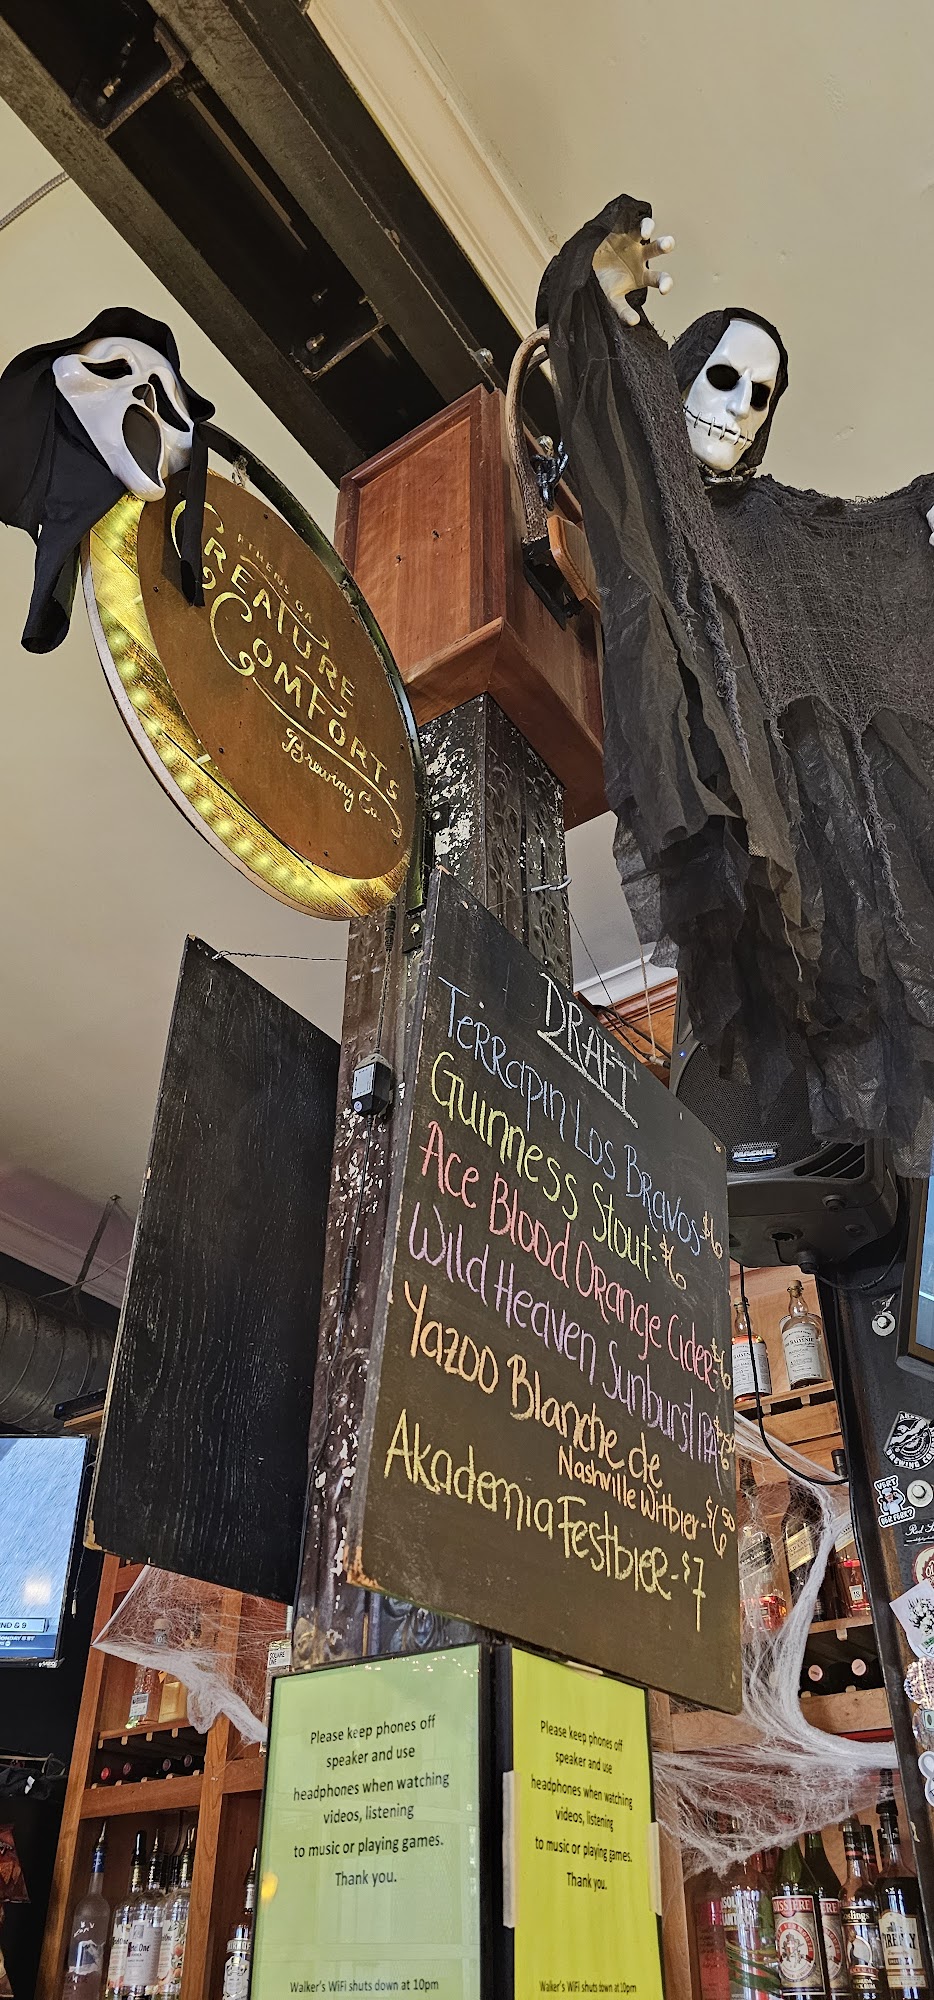 ATHENS GA
CREATURE
COMFORTS
Brewing Co.
DRAFT
Terrapin Los Bravos-$6
Guinness Stout-$6
Ace Blood Orange Cider-$6
Wild Heaven Sunburst IPA $6.50
Yazoo Blanche de
Nashville Witbier-$6.50
Akademia Festbier-$7
MACKIE
Please keep phones off
speaker and use
headphones when watching
videos, listening
to music or playing games.
Thank you.
Walker's WiFi shuts down at 10pm
Please keep phones off
speaker and use
headphones when watching
videos, listening
to music or playing games.
Thank you.
Walker's WiFi shuts down at 10pm